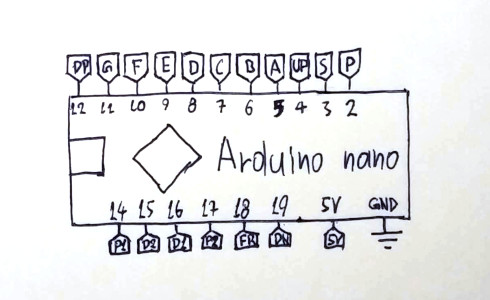 DP G F E D C B A UP S P
12 11 10 9 8 7 6 5 4 3 2
Arduino nano
14 15 16 17 18 19 5V GND
P1 D2 D1 P2 FR DN 5V